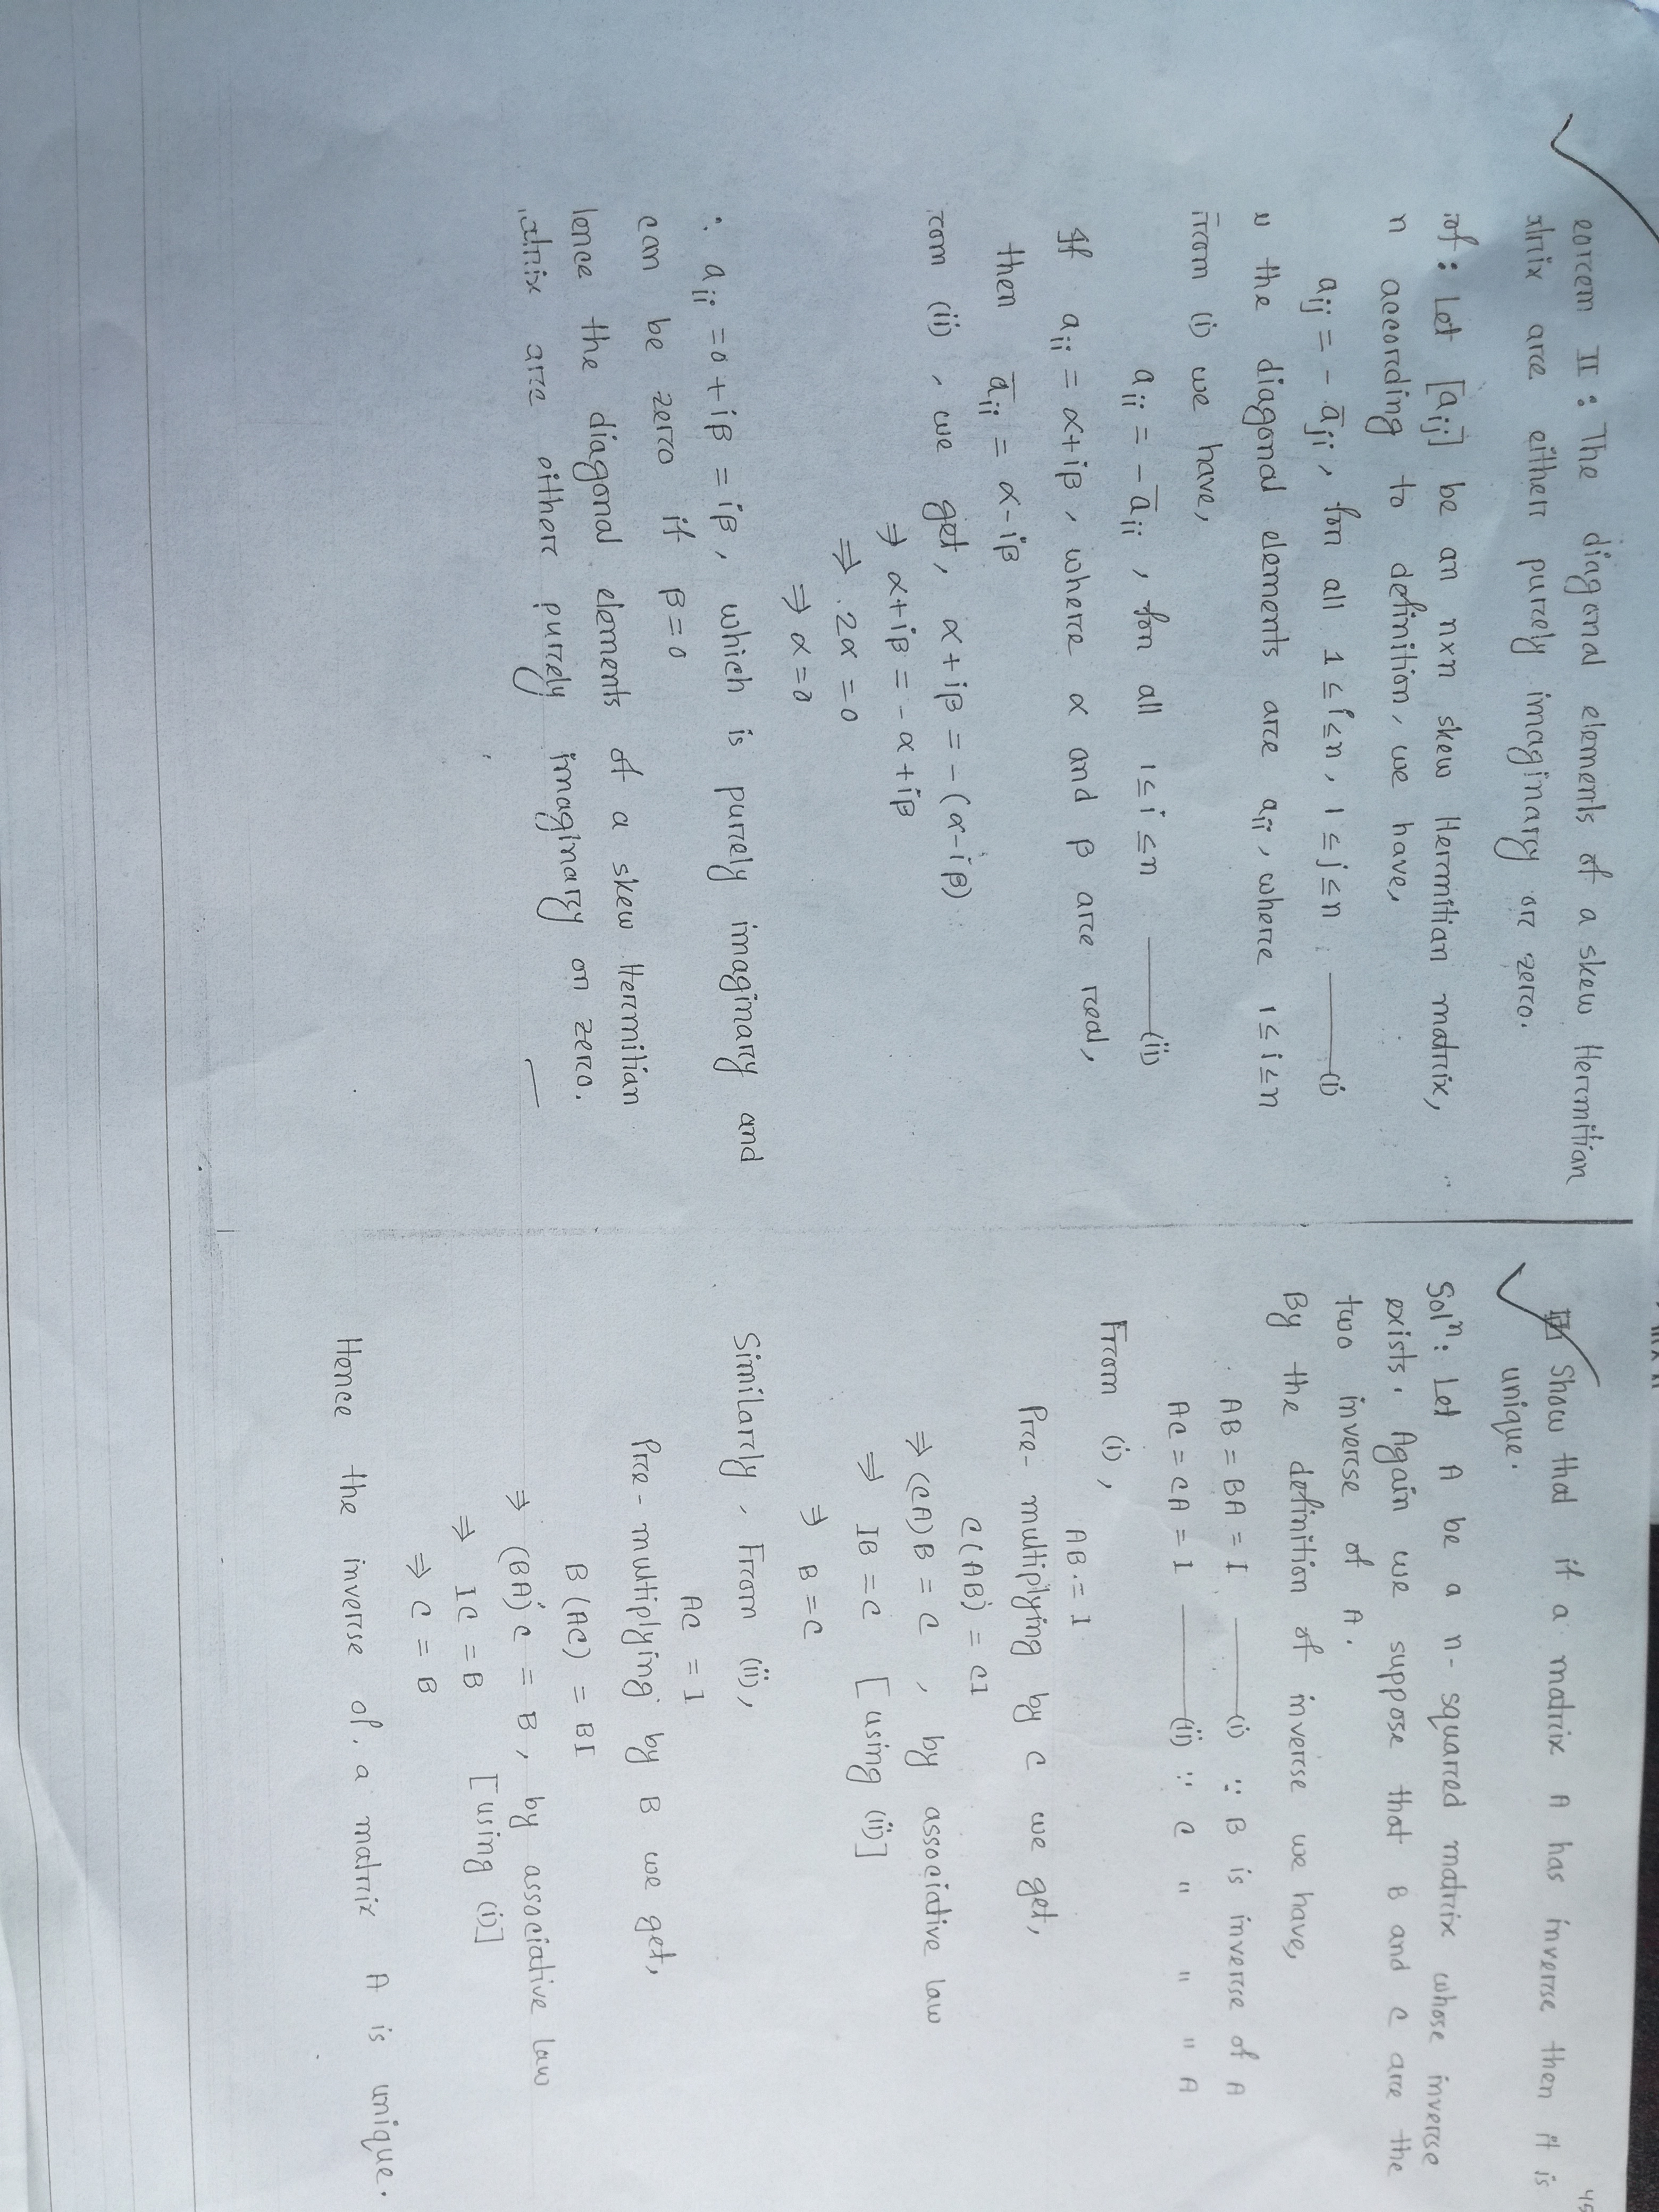 eorem II : The diagonal elements of a skew Hermitian
atrix are either purely imaginary or zero.
of : Let [aij] be an n×n skew Hermitian matrix,
n according to definition, we have,
aij = - āji , for all 1 ≤ i ≤ n, 1 ≤ j ≤ n ——(i)
the diagonal elements are aii , where 1 ≤ i ≤ n
From (i) we have,
aii = - āii , for all 1 ≤ i ≤ n ——(ii)
If aii = α+iβ , where α and β are real,
then āii = α-iβ
rom (ii) , we get, α+iβ = -(α-iβ)
⇒ α+iβ = -α+iβ
⇒ 2α = 0
⇒ α = 0
∴ aii = 0+iβ = iβ , which is purely imaginary and
can be zero if β = 0
lence the diagonal elements of a skew Hermitian
atrix are either purely imaginary or zero.
45
Show that if a matrix A has inverse then it is
unique.
Solⁿ: Let A be a n- squared matrix whose inverse
exists. Again we suppose that B and C are the
two inverse of A.
By the definition of inverse we have,
AB = BA = I ——(i) ∵ B is inverse of A
AC = CA = I ——(ii) ∵ C " " " A
From (i) ,
AB = I
Pre- multiplying by C we get,
C(AB) = CI
⇒ (CA)B = C , by associative law
⇒ IB = C [using (ii)]
⇒ B = C
Similarly , From (ii),
AC = I
Pre - multiplying by B we get,
B(AC) = BI
⇒ (BA)C = B , by associative law
⇒ IC = B [using (i)]
⇒ C = B
Hence the inverse of a matrix A is unique.